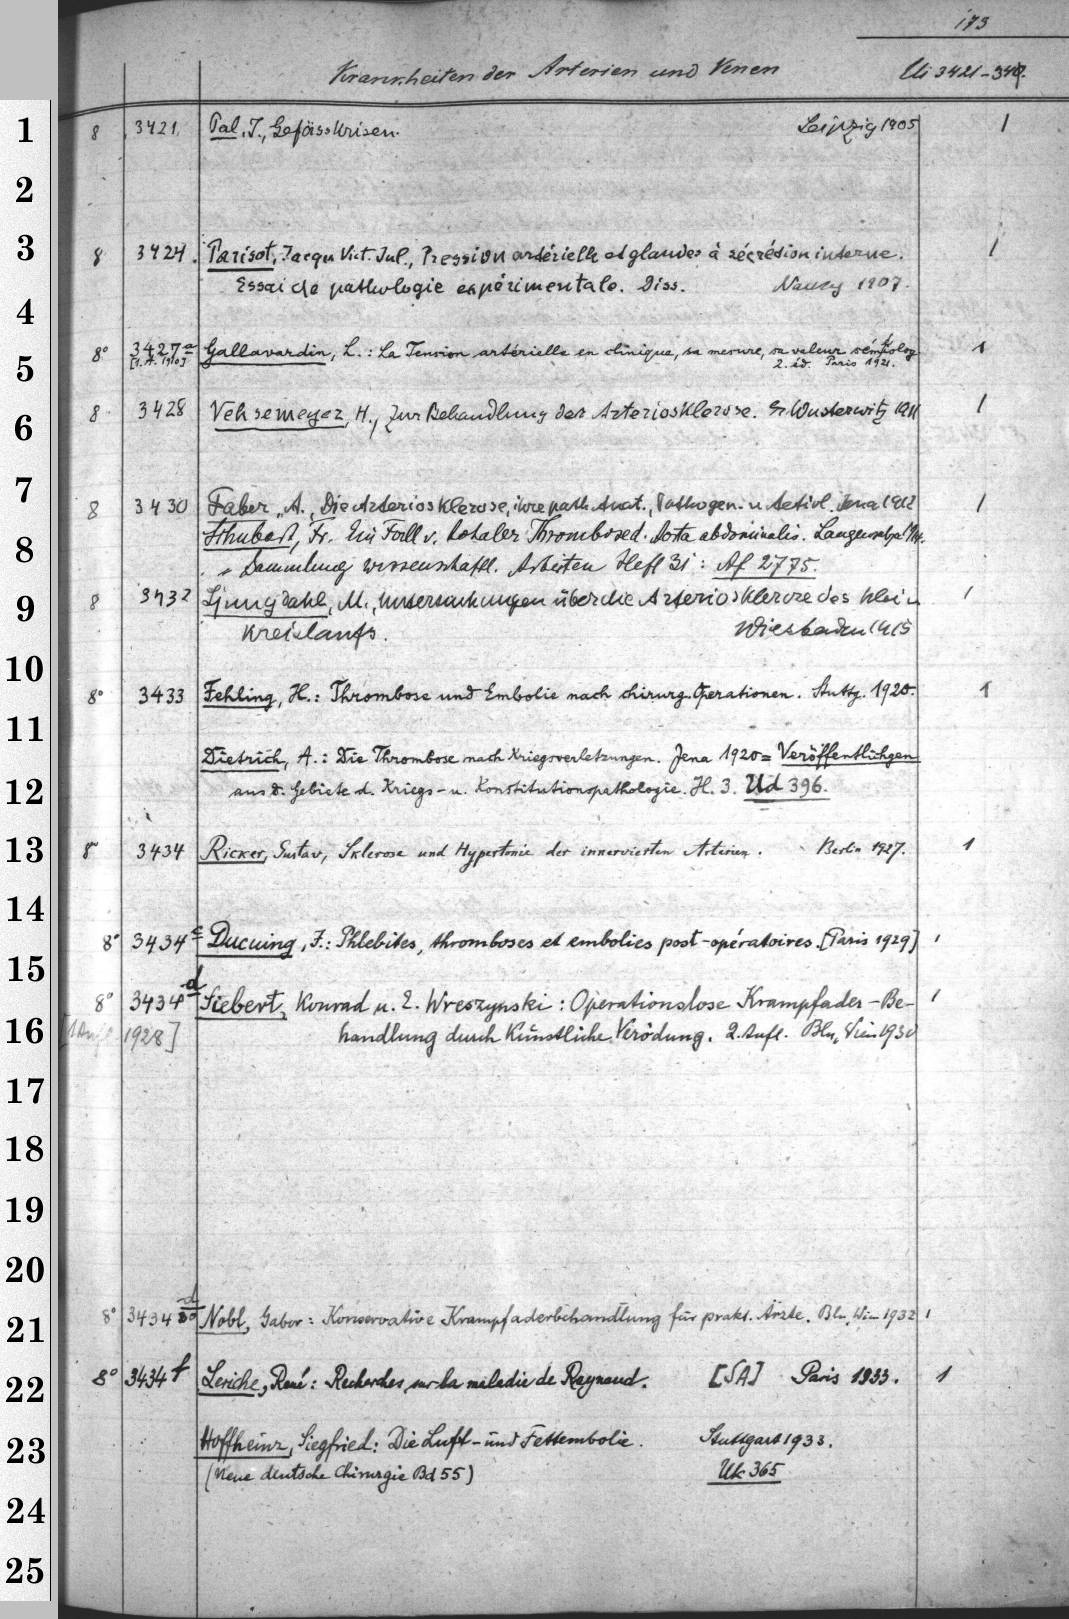 173
Krankheiten der Arterien und Venen Ui 3421-
1 8 3421 Pal, J., Gefässkrisen. Leipzig 1905 1
2
3 8 3424. Parisot, Jacqu Vict. Jul., Pression artérielle et glandes à sécrétion interne. 1
Essai de pathologie expérimentale. Diss. Nancy 1907.
4
5 8° 3427a Gallavardin, L.: La Tension artérielle en clinique, sa mesure, sa valeur 1
[1.A. 1910] 2. éd. Paris 1921.
6 8 3428 Vehsemeyer, H., Zur Behandlung der Arteriosklerose. Gr Wusterwitz 1911 1
7 8 3430 Faber, A., Die Arteriosklerose, ihre path. Anat., Pathogen. u Aetiol. Jena 1912 1
8 Schubert, Fr. Ein Fall v. lokaler Thrombose d. Aorta abdominalis.
Sammlung wissenschaftl. Arbeiten Heft 31: Af 2775.
9 8 3432 Ljungdahl, M., Untersuchungen über die Arteriosklerose des klein 1
kreislaufs. Wiesbaden 1915
10 8° 3433 Fehling, H.: Thrombose und Embolie nach chirurg. Operationen. Stuttg. 1920. 1
11
Dietrich, A.: Die Thrombose nach Kriegsverletzungen. Jena 1920 = Veröffentlichgen
12 aus d. Gebiete d. Kriegs- u. Konstitutionspathologie. H. 3. Ud 396.
13 8° 3434 Ricker, Gustav, Sklerose und Hypertonie der innervierten Arterien. Berlin 1927. 1
14
8° 3434c Ducuing, J.: Phlébites, thromboses et embolies post-opératoires. [Paris 1929] 1
15
8° 3434d Siebert, Konrad u. E. Wreszynski: Operationslose Krampfader-Be- 1
16 [1 Aufl 1928] handlung durch künstliche Verödung. 2. Aufl. Bln, Wien 1930
17
18
19
20
21 8° 3434 d Nobl, Gabor: Konservative Krampfaderbehandlung für prakt. Ärzte. Bln, Wien 1932 1
22 8° 3434f Leriche, René: Recherches sur la maladie de Raynaud. [SA] Paris 1933. 1
23 Hoffheinz, Siegfried: Die Luft- und Fettembolie. Stuttgart 1933.
(Neue deutsche Chirurgie Bd 55) Uk 365
24
25